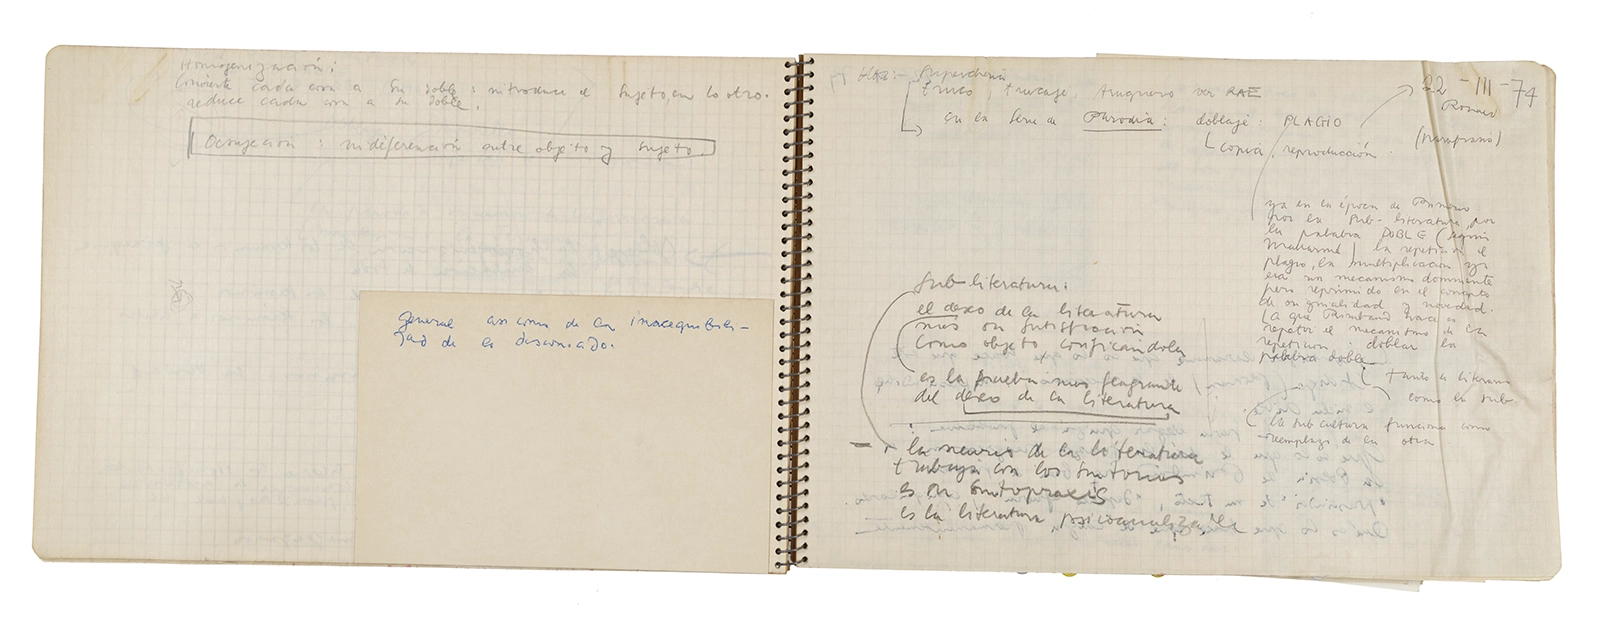 Homogenización:
Convierte cada con a su doble: introduce el sujeto, en lo otro.
reduce cada con a su doble.
: indiferención entre objeto y sujeto.
general así como de la inacequibili-
dad de lo deseado.
Superchería
truco, trucaje, truquero ver RAE
en la serie de Parodia: doblaje: PLAGIO
copia, reproducción.
22-III-74
ya en la época de
por la sub-literatura, por
la palabra DOBLE (según
) la repetición el
plagio, la multiplicación ya
era un mecanismo dominante
pero reprimido en el concepto
de originalidad y novedad.
lo que Rimbaud hace es
repetir el mecanismo de la
repetición: doblar la
palabra doble
tanto la literaria
como la sub-
la sub cultura funciona como
reemplazo de la otra
Sub-literatura:
el deseo de la literatura
mas su satisfacción
como objeto
es la prueba mas flagrante
del deseo de la literatura
la neurosis de la literatura
trabaja con los síntomas
es su
es la literatura psicoanalizada